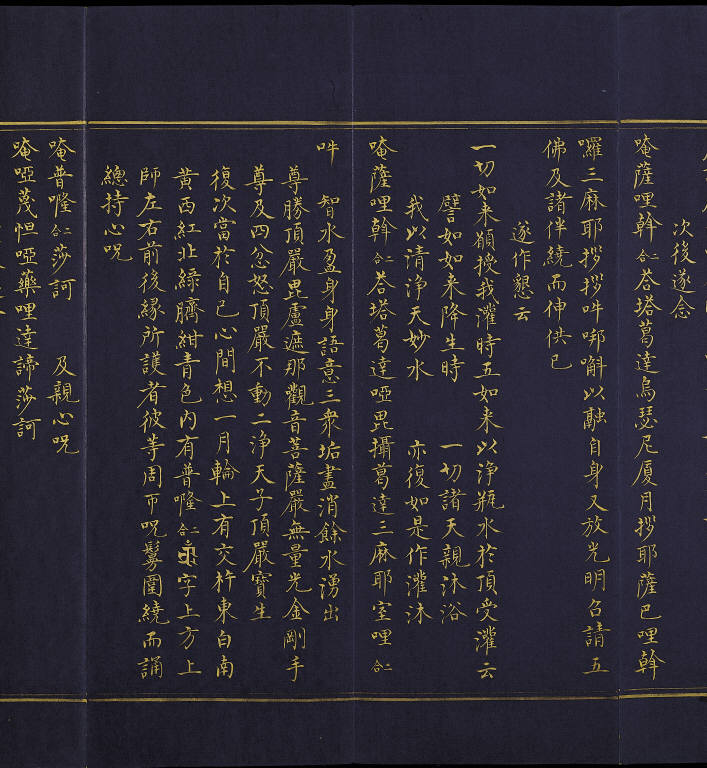 次後遂念
唵薩哩斡二合荅塔葛達烏瑟尼厦月拶耶薩巴哩斡
囉三麻耶拶拶吽㖿斛以融自身又放光明召請五
佛及諸伴繞而伸供已
遂作懇云
一切如来願授我灌時五如来以浄瓶水於頂受灌云
譬如如来降生時　一切諸天親沐浴
我以清浄天妙水　亦復如是作灌沐
唵薩哩斡二合荅塔葛達啞毘攝葛達三麻耶室哩二合
吽　智水盈身身語意三衆垢盡消餘水湧出
尊勝頂嚴毘盧遮那觀音菩薩嚴無量光金剛手
尊及四忿怒頂嚴不動二浄天子頂嚴寶生
復次當於自己心間想一月輪上有交杵東白南
黄西紅北緑臍紺青色内有普㘕二合字上方上
師左右前後縁所護者彼等周帀呪鬘圍繞而誦
總持心呪
唵普㘕二合莎訶　及親心呪
唵啞蔑怛啞藥哩達諦莎訶